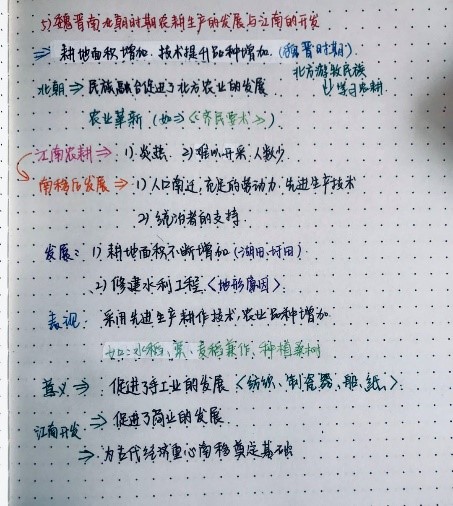 5)魏晋南北朝时期农耕生产的发展与江南的开发
⇒ 耕地面积增加、技术提升品种增加.(魏晋时期)
北方游牧民族
↓学习农耕
北朝⇒ 民族融合促进了北方农业的发展
农业革新(如⇒《齐民要术》)
江南农耕⇒ 1)炎热 2)难以开采,人数少.
南移后发展⇒ 1)人口南迁,充足的劳动力.先进生产技术
2)统治者的支持.
发展: 1)耕地面积不断增加(湖田.圩田)
2)修建水利工程.<地形原因>.
表现: 采用先进生产耕作技术,农业品种增加.
如:水稻、粟、麦稻兼作、种植桑树
意义⇒ 促进手工业的发展<纺织、制瓷器、船、纸、>.
江南开发⇒ 促进了商业的发展.
⇒ 为古代经济重心南移奠定基础